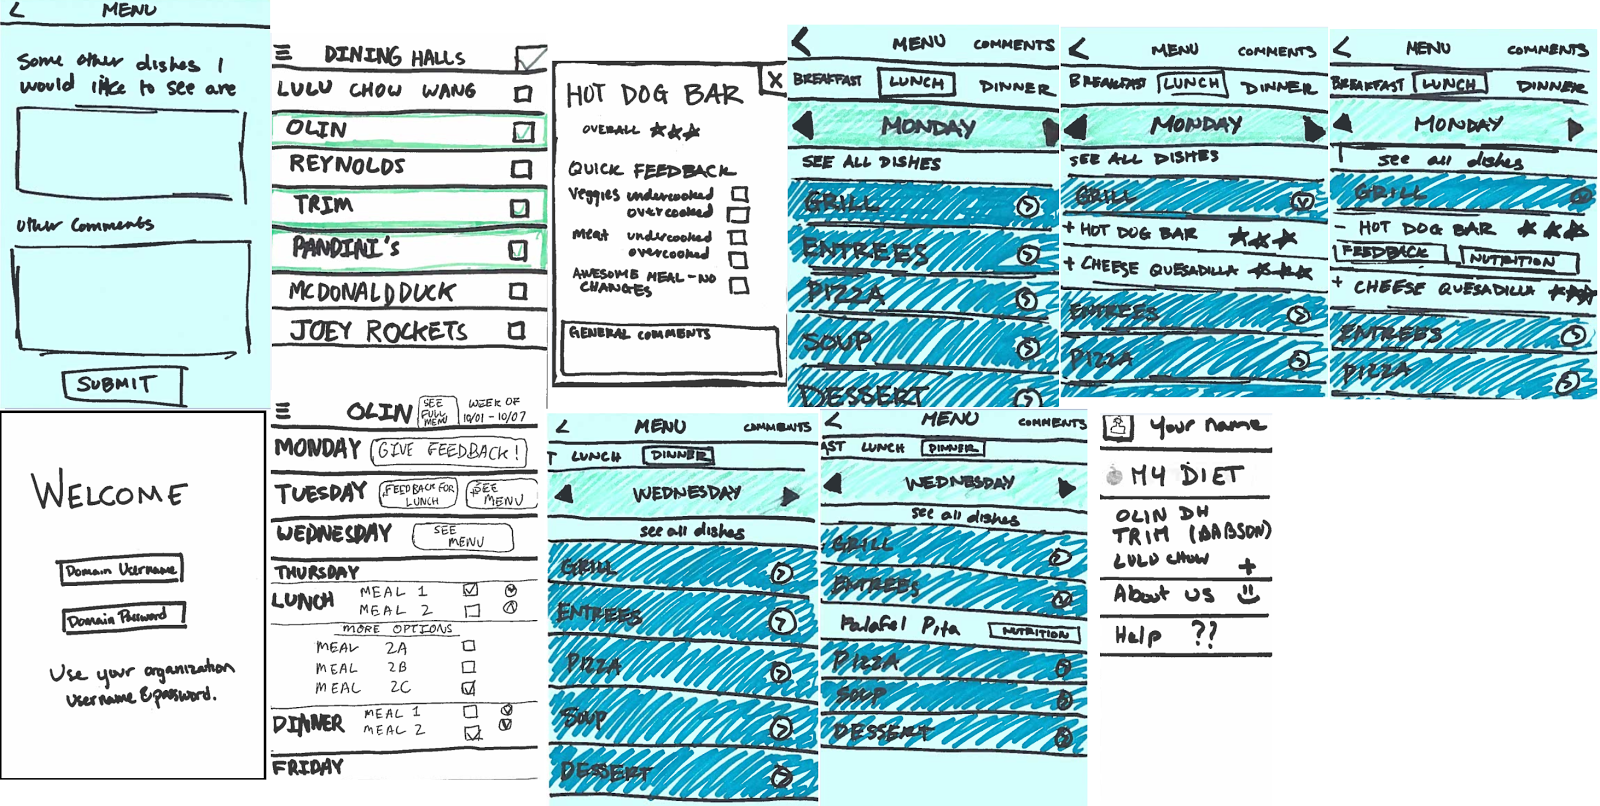 < MENU
Some other dishes I
would like to see are
other comments
SUBMIT
DINING HALLS
LULU CHOW WANG
OLIN
REYNOLDS
TRIM
PANDINI'S
MCDONALD DUCK
JOEY ROCKETS
X
HOT DOG BAR
OVERALL
QUICK FEEDBACK
Veggies undercooked
overcooked
meat undercooked
overcooked
AWESOME MEAL - NO
CHANGES
GENERAL COMMENTS
< MENU COMMENTS
BREAKFAST LUNCH DINNER
MONDAY
SEE ALL DISHES
GRILL
ENTREES
PIZZA
SOUP
DESSERT
< MENU COMMENTS
BREAKFAST LUNCH DINNER
MONDAY
SEE ALL DISHES
GRILL
+ HOT DOG BAR
+ CHEESE QUESADILLA
ENTREES
PIZZA
< MENU COMMENTS
BREAKFAST LUNCH DINNER
MONDAY
see all dishes
GRILL
- HOT DOG BAR
FEEDBACK NUTRITION
+ CHEESE QUESADILLA
ENTREES
PIZZA
WELCOME
Domain Username
Domain Password
Use your organization
username & password.
OLIN SEE FULL MENU WEEK OF 10/01 - 10/07
MONDAY GIVE FEEDBACK!
TUESDAY FEEDBACK FOR LUNCH SEE MENU
WEDNESDAY SEE MENU
THURSDAY
LUNCH MEAL 1
MEAL 2
MORE OPTIONS
MEAL 2A
MEAL 2B
MEAL 2C
DINNER MEAL 1
MEAL 2
FRIDAY
< MENU COMMENTS
T LUNCH DINNER
WEDNESDAY
see all dishes
GRILL
ENTREES
PIZZA
SOUP
DESSERT
< MENU COMMENTS
AST LUNCH DINNER
WEDNESDAY
see all dishes
GRILL
ENTREES
Falafel Pita NUTRITION
PIZZA
SOUP
DESSERT
Your name
MY DIET
OLIN DH
TRIM (BABSON)
LULU CHOW +
About us
Help ??